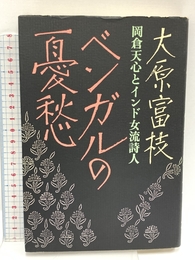 大原富枝
岡倉天心とインド女流詩人
ベンガルの
憂愁